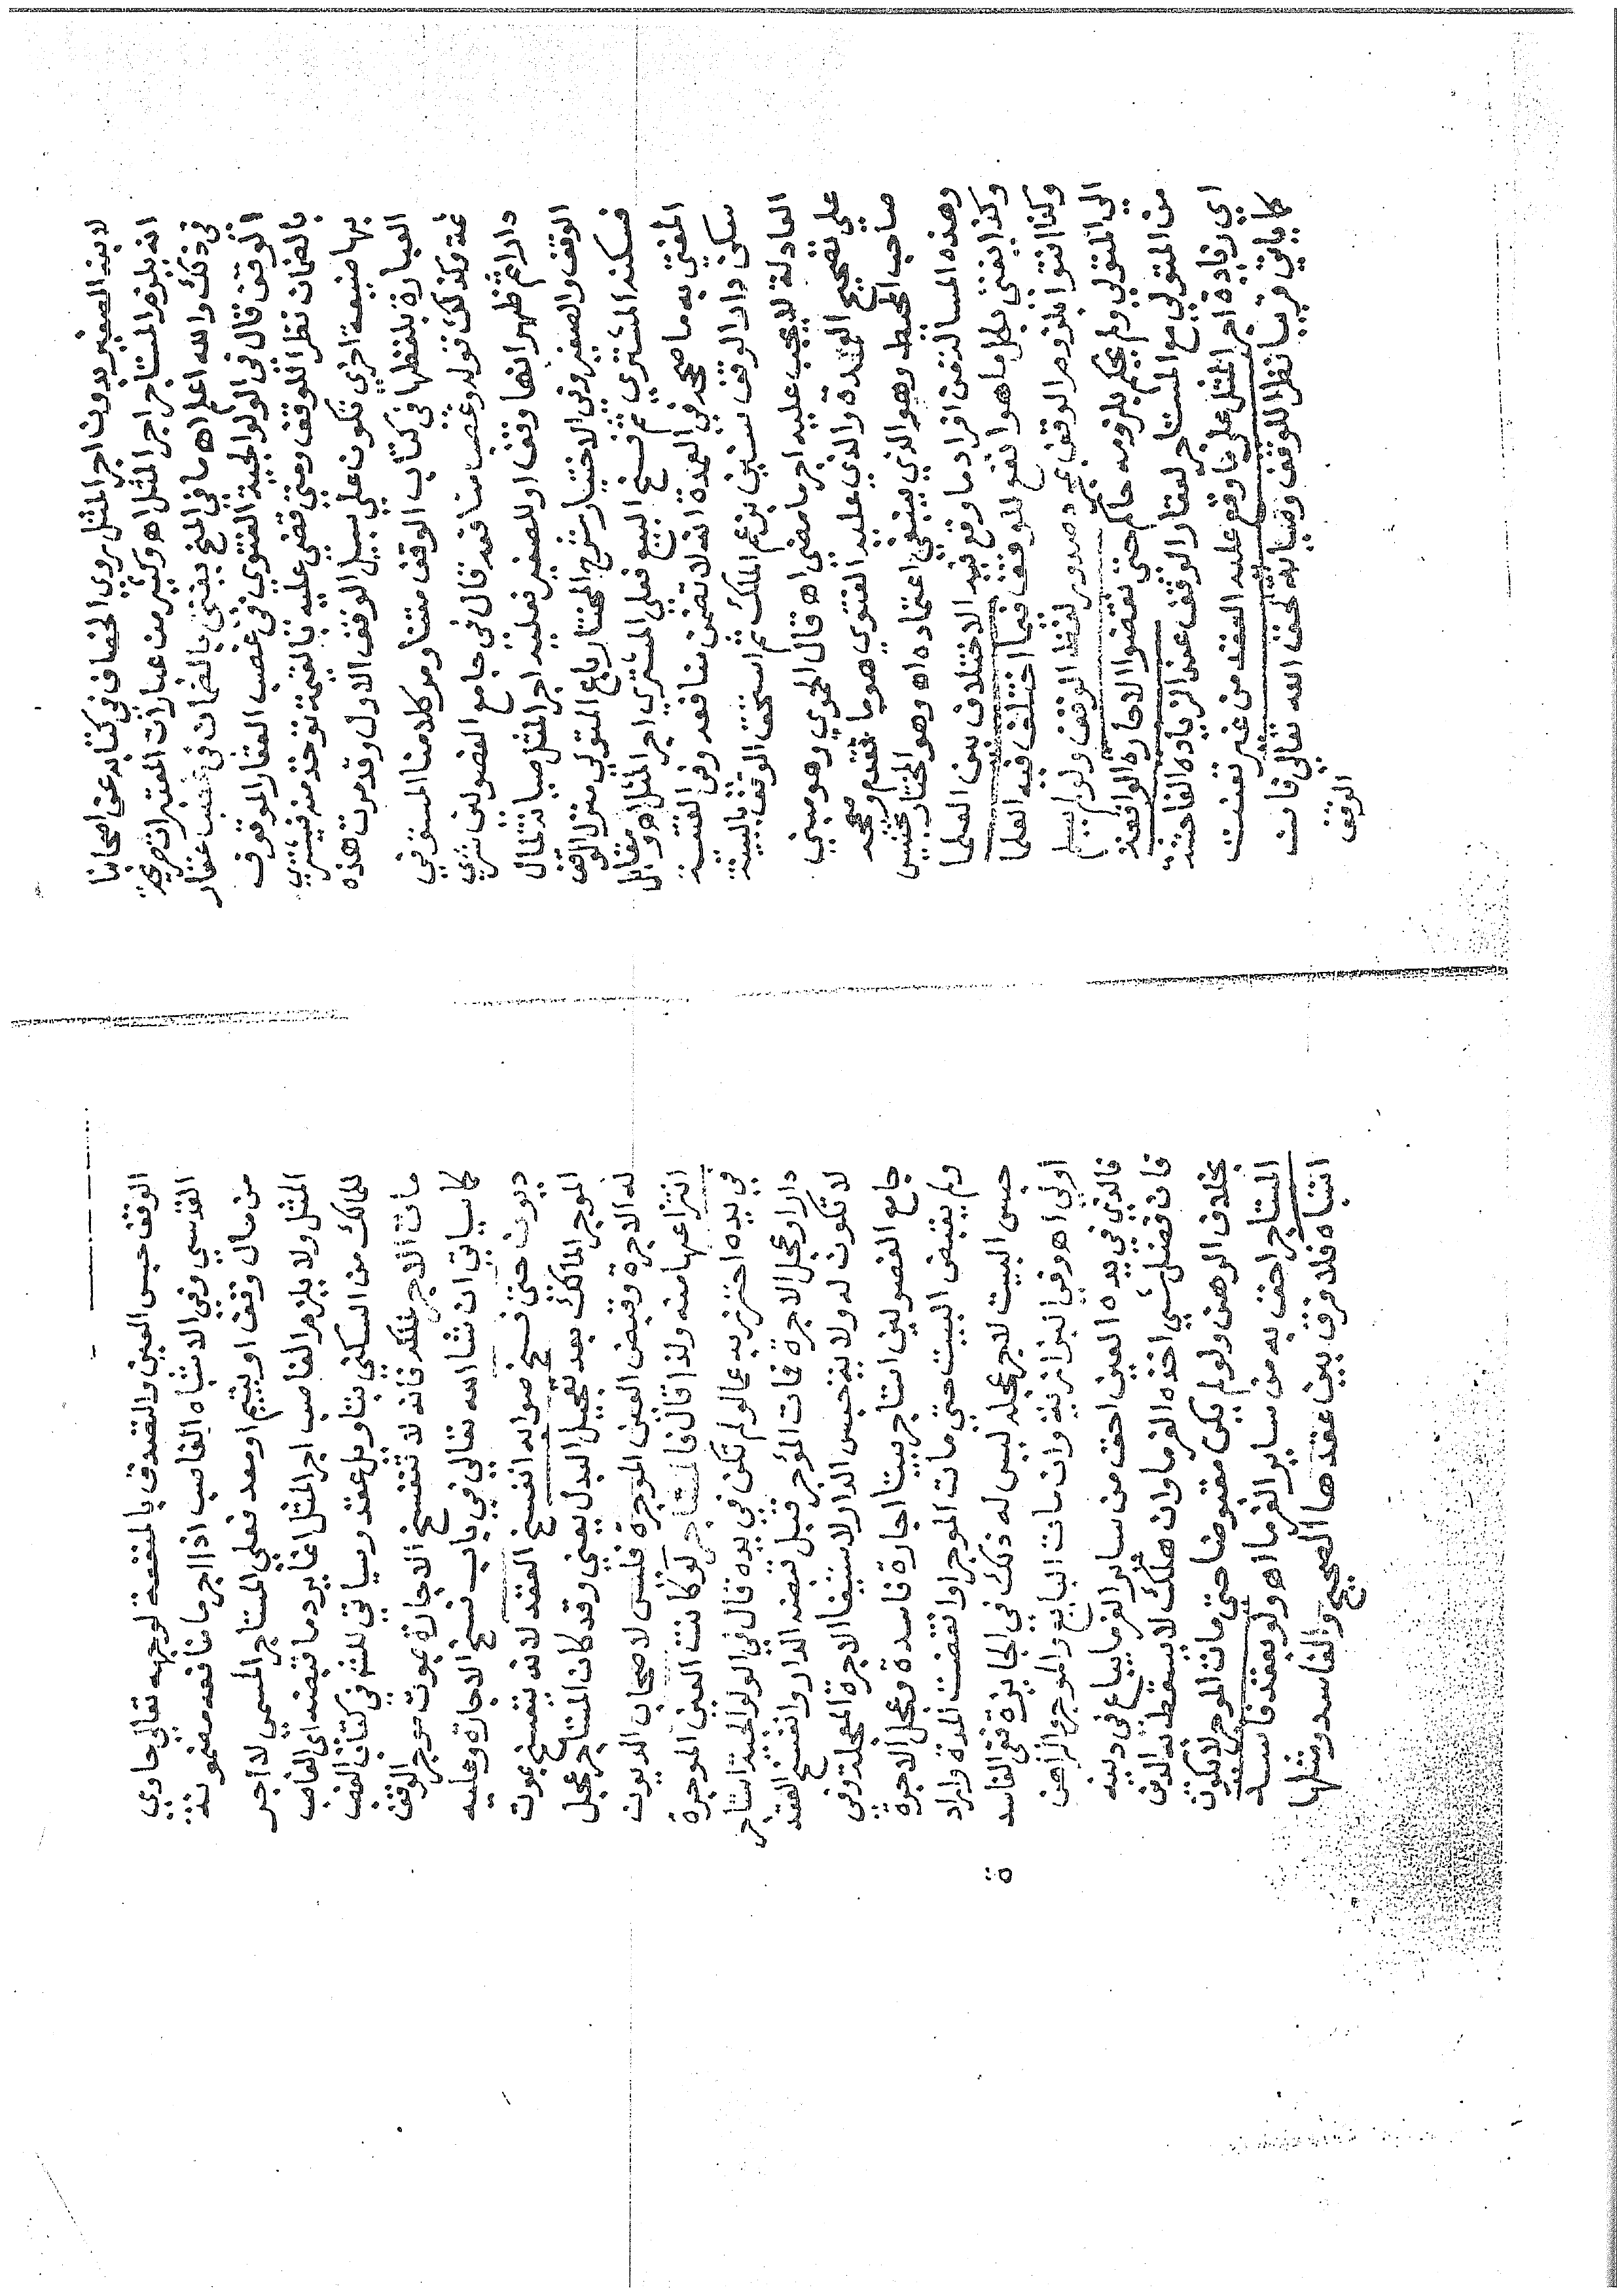 لابنه الصغير بدون اجر المثل روي الخصاف في كتابه عن اصحابنا
انه يلزم المستاجر اجر المثل اه وكثير من عبارات المعتبرات صريحة
في ذلك والله اعلم اه ما في المنح يفتي بالضمان في غصب عقار
الوقف قال في الولوالجية الفتوي في غصب العقار الموقوف
بالضمان نظرا للوقف ومتي قضي عليه بالقيمة توخذ منه فيشتري
بها ضيعة اخري تكون علي سبيل الوقف الاول وقد مرت هذه
العبارة بلفظها في كتاب الوقف متنا ومر كلامنا المستوفي
ثمة وكذلك قوله وغصب منافعه قال في جامع الفصولين شري
دارا ثم ظهر انها وقف او للصغير فعليه اجر المثل صيانة لمال
الوقف والصغير وفي الاختيار شرح المختار باع المتولي منزل الوقف
فسكنه المشتري ثم فسخ البيع فعلي المشتري اجر المثل اه ومقابل
المفتي به ما صححه في العمدة انه لا تضمن منافعه وفي القنية
سكن دار الوقف سنين بزعم الملك ثم استحق الوقف بالبينة
العادلة لا يجب عليه اجر ما مضي اه قال الحموي وهو مبني
علي تصحيح العمدة والذي عليه الفتوي هو ما تقدم وصححه
صاحب المحيط وهو الذي ينبغي اعتماده اه وهو المختار تجنيس
وهذه المسالة من افراد ما وقع فيه الاختلاف بين العلما
وكذا يفتي بكل ما هو انفع للوقف فيما اختلف فيه العلما
وكذا افتوا بلزوم الوقف بمجرد صدور لفظ الوقف ولو لم يسلم
الي المتولي ولم يحكم بلزومه حاكم حتي نقضوا الاجارة الواقعة
من المتولي مع المستاجر لعقار الوقف عند الزيادة الفاحشة
اي زيادة اجر المثل علي ما وقع عليه العقد من غير تعنت
كما ياتي قريبا نظرا للوقف وصيانة لحق الله تعالي فان
الوقف
الوقف حبس العين والتصدق بالمنفعة لوجهه تعالي حاوي
القدسي وفي الاشباه الغاصب اذا اجر ما منافعه مضمونة
من مال وقف او يتيم او معد فعلي المستاجر المسمي لا اجر
المثل ولا يلزم الغاصب اجر المثل انما يرد ما قبضه اي الغاصب
للمالك من السكني بتاويل عقد وسياتي للشر في كتاب الغصب
مات الاجر للكر فانه لا تنفسخ الاجارة بموت موجر الوقف
كما سياتي ان شا الله تعالي في باب فسخ الاجارة وعليه
ديون حتي فسخ صوابه انفسخ العقد لانه ينفسخ بموت
الموجر المالك بعد تعجيل البدل يعني وقد كان المستاجر عجل
له الاجرة وقبض العين الموجرة فليس لاصحاب الديون
انتزاعها منه ولذا قال فالمستاجر لو كانت العين الموجرة
في يده احترز به عما لو لم تكن في يده قال في الولوالجية استاجر
دارا وعجل الاجرة فمات المؤجر قبل قبضه الدار وانفسخ العقد
لا تكون له ولاية حبس الدار لاستيفا الاجرة المعجلة وفي
جامع الفصولين استاجر بيتا اجارة فاسدة وعجل الاجرة
ولم يقبض البيت حتي مات الموجر او انقضت المدة واراد
حبس البيت لاجر عجله ليس له ذلك في الجايزة ففي الفاسد
اولي اه وفي البزازية وان مات البايع والموجر والراهن
فالذي في يده العين احق من ساير الغرما يباع في دينه
فان فضل شي اخذه الغرما وان هلك لا يسقط به الدين
بخلاف الرهن ولو لم يكن مقبوضا حتي مات الموجر لا يكون
المستاجر احق به من ساير الغرما اه ولو بعقد فاسد
اشباه فلا فرق بين عقدها الصحيح والفاسد ومثلها